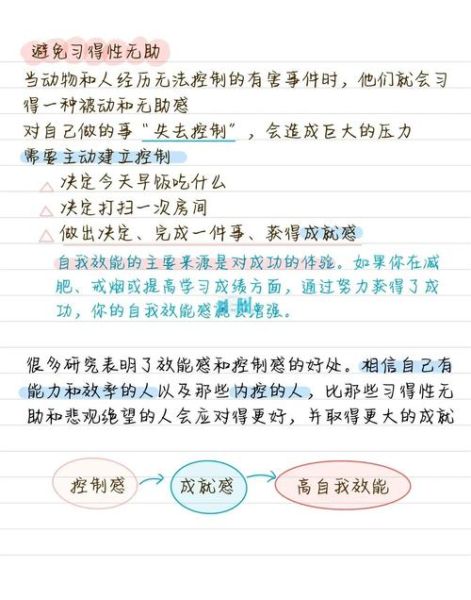 避免习得性无助
当动物和人经历无法控制的有害事件时，他们就会习
得一种被动和无助感
对自己做的事“失去控制”，会造成巨大的压力
需要主动建立控制
△ 决定今天早饭吃什么
△ 决定打扫一次房间
△ 做出决定、完成一件事、获得成就感
自我效能的主要来源是对成功的体验。如果你在减
肥、戒烟或提高学习成绩方面，通过努力获得了成
功，你的自我效能感就会增强。
很多研究表明了效能感和控制感的好处。相信自己有
能力和效率的人以及那些内控的人，比那些习得性无
助和悲观绝望的人会应对得更好，并取得更大的成就
控制感 → 成就感 → 高自我效能